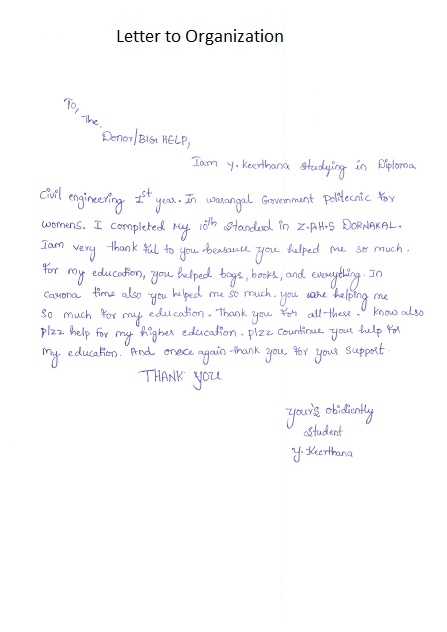 Letter to Organization
To,
The,
Donor/BIG HELP,
Iam Y. Keerthana studying in Diploma
Civil engineering 1st year. In warangal Government Politecnic for
womens. I completed My 10th Standerd in Z.P.H.S DORNAKAL.
Iam very thank ful to you beasause you helped me so much.
for my education, you helped bags, books, and everything. In
Carona time also you helped me so much. you are helping me
So much for my education. thank you for all-these. know also
plzz help for my higher education. plzz countinue your help for
my education. And onece again thank you for your Support.
THANK YOU
your's obidiently
Student
Y. Keerthana